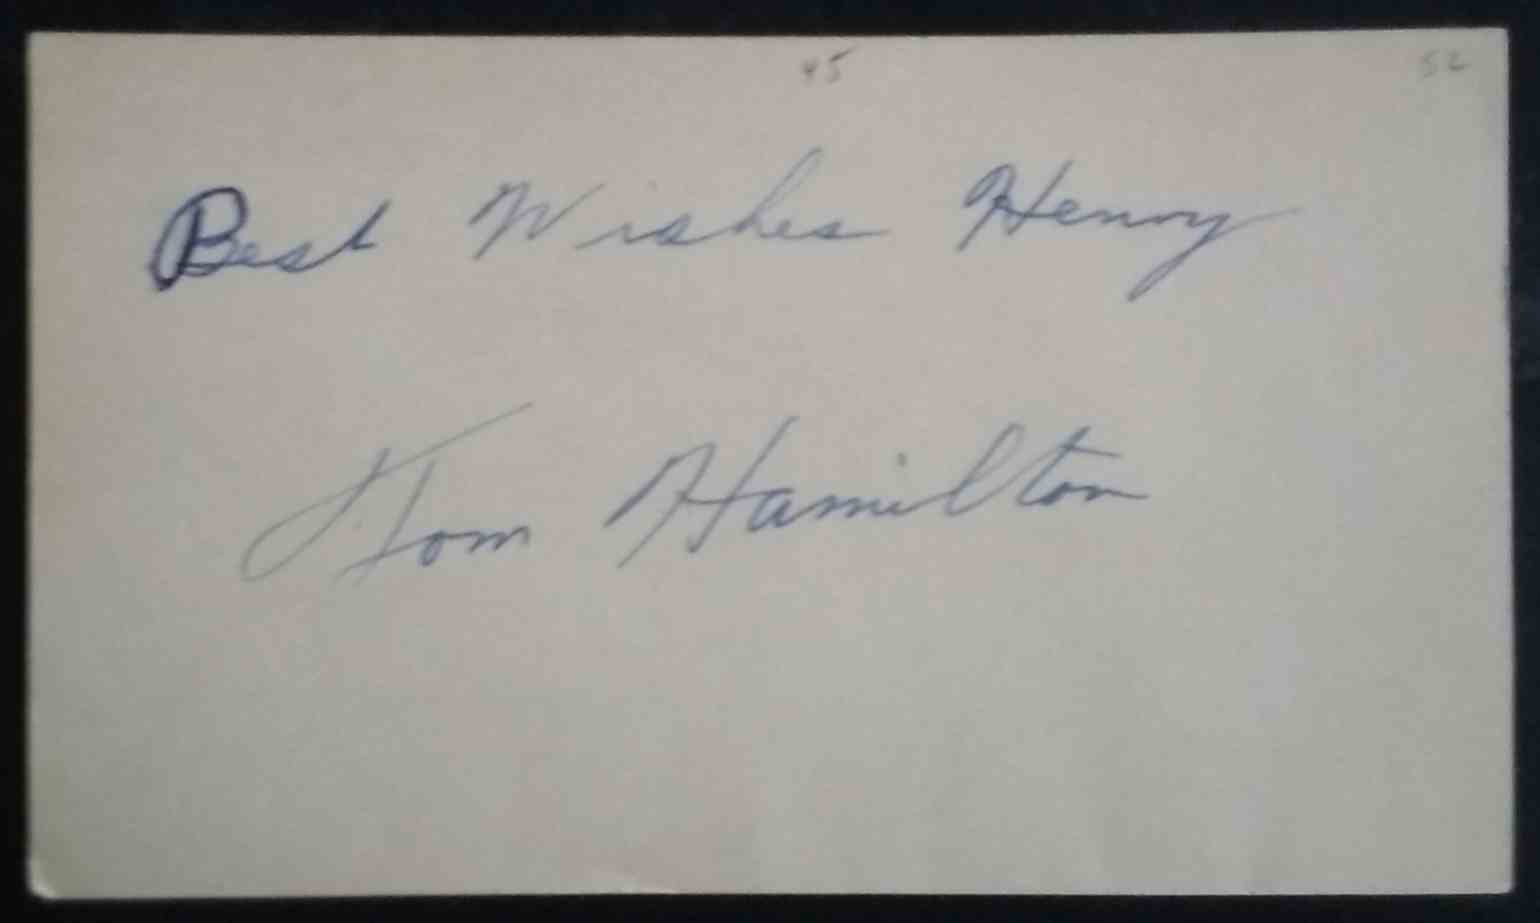 45 52
Best Wishes Henry
Tom Hamilton